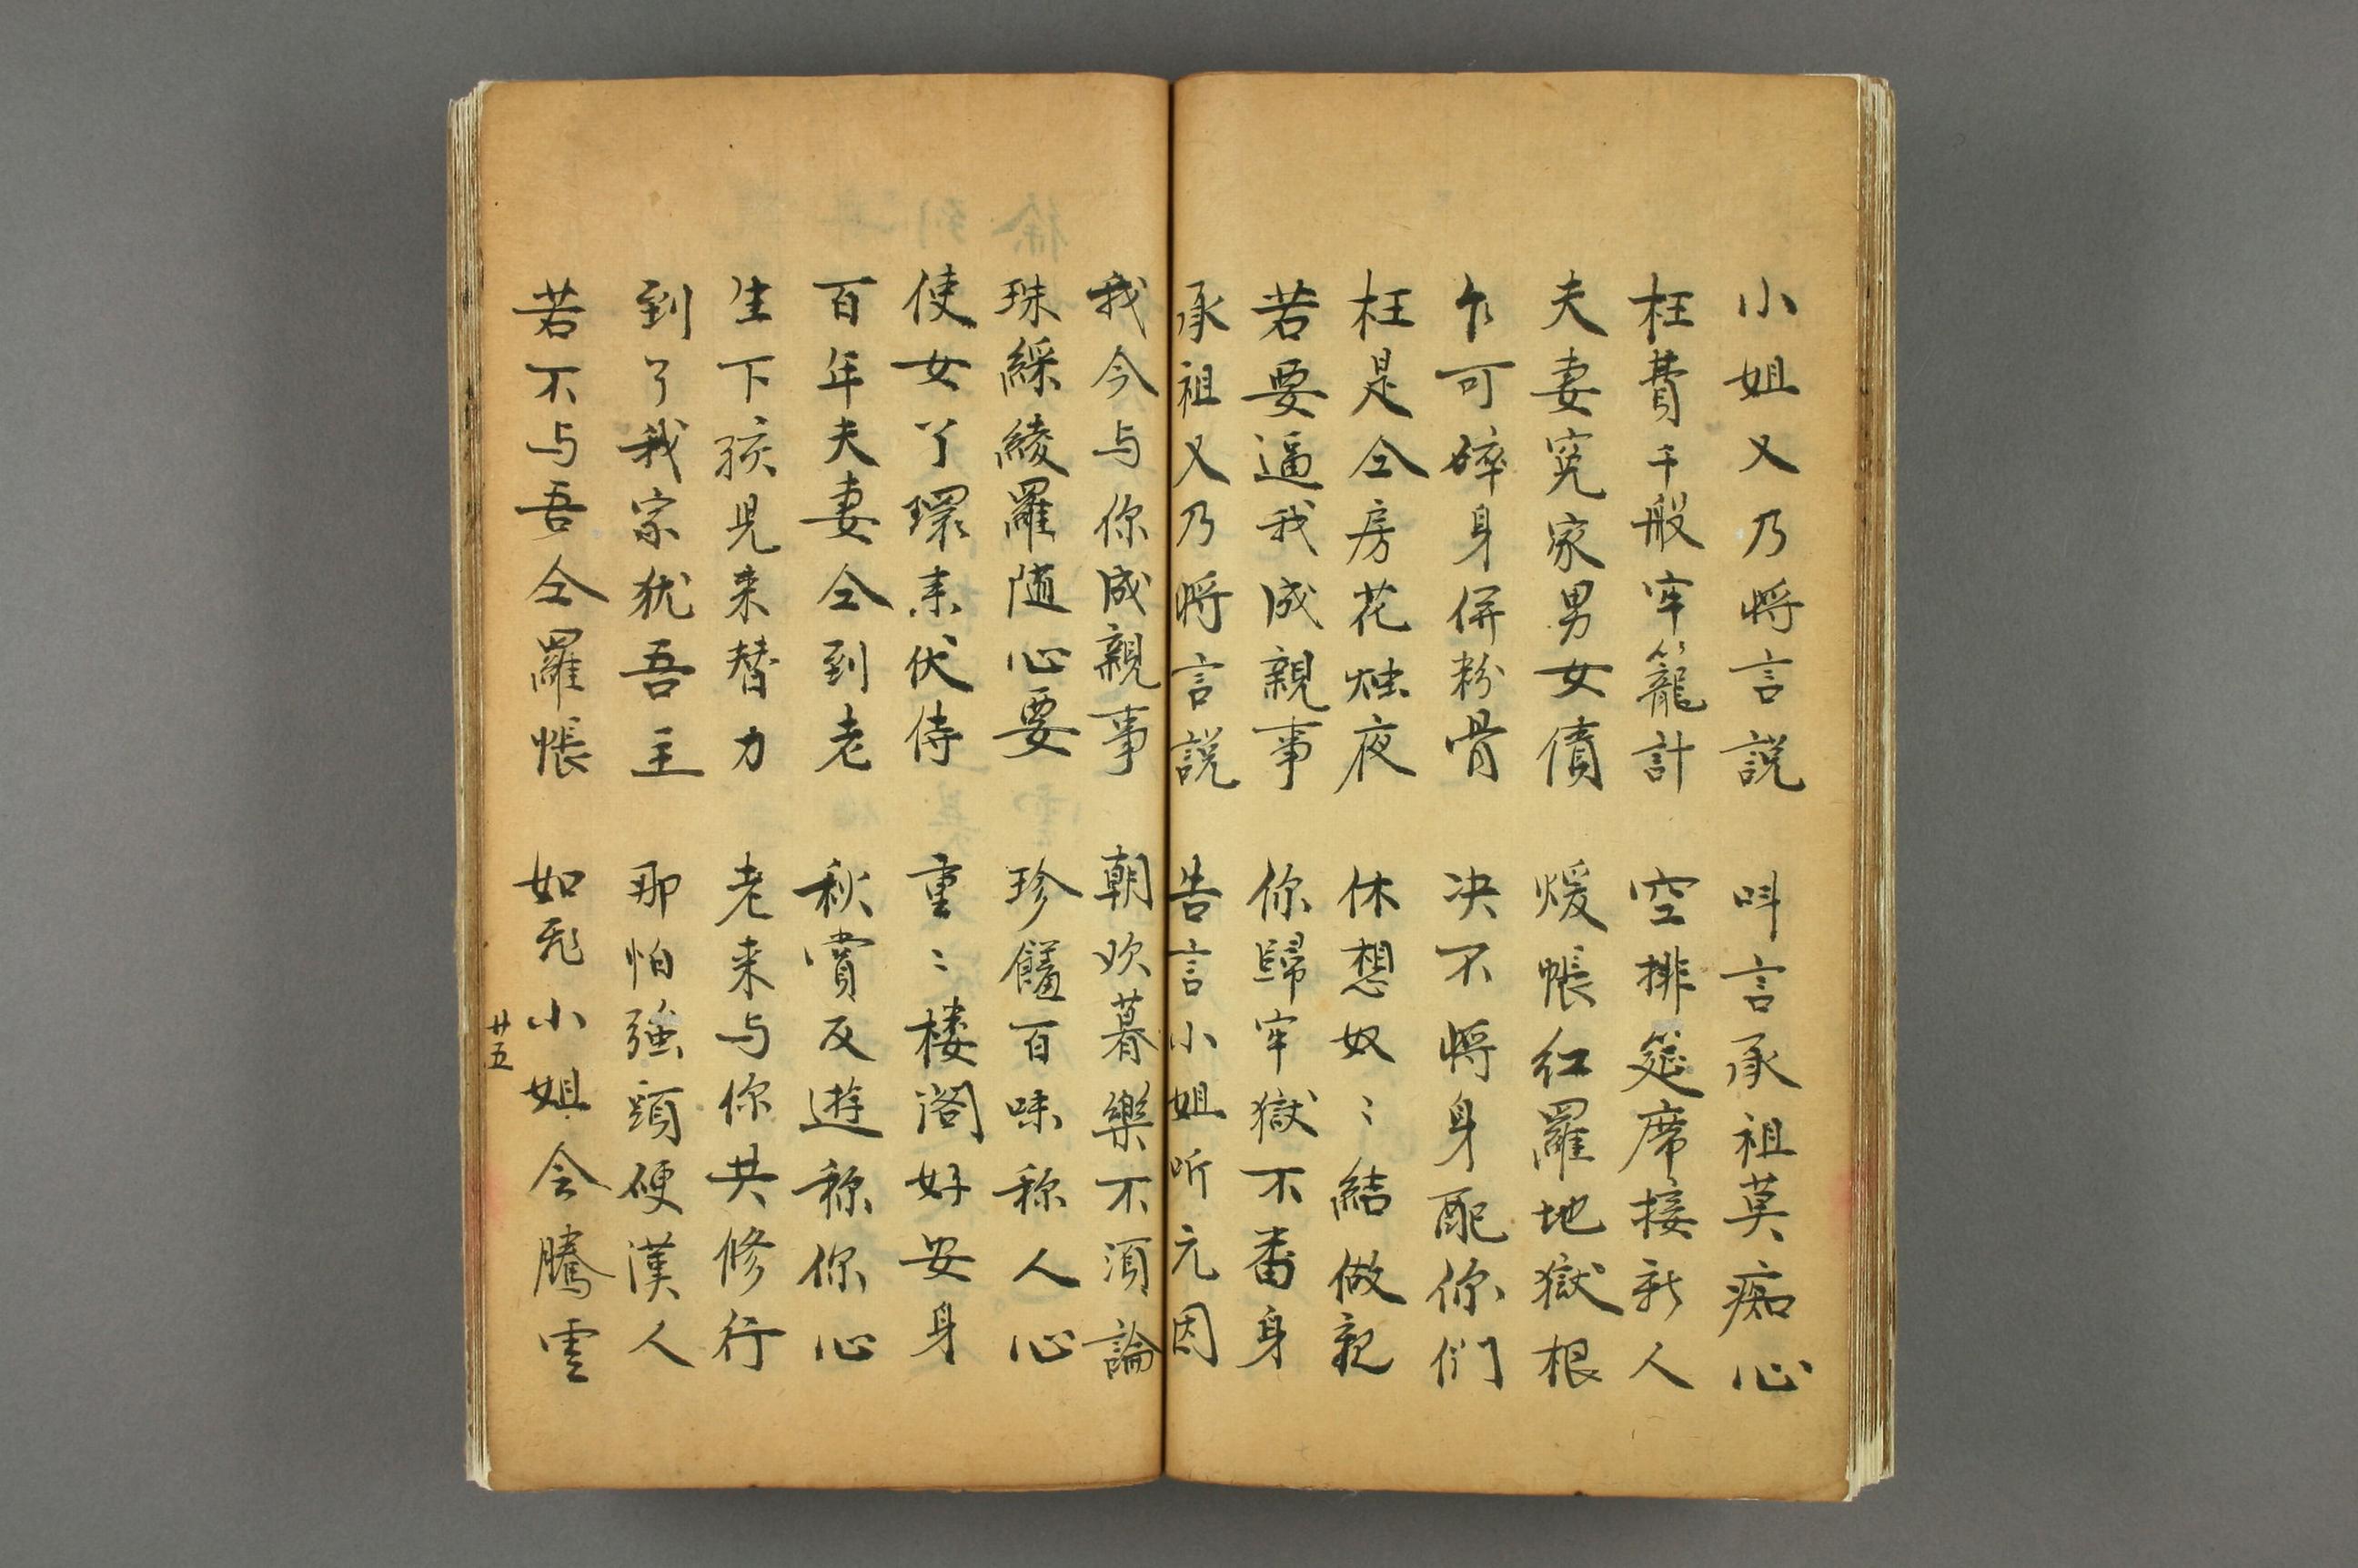 小姐又乃将言説　呌言承祖莫痴心
枉費千般牢籠計　空排筵席接新人
夫妻冤家男女債　煖帳红羅地獄根
乍可碎身併粉骨　决不将身配你們
枉是仝房花烛夜　休想奴〻結做親
若要逼我成親事　你歸牢獄不番身
承祖又乃将言説　告言小姐听元因
我今与你成親事　朝欢暮樂不須論
珠綵綾羅随心要　珍饈百味称人心
使女丫環来伏侍　重〻楼阁好安身
百年夫妻仝到老　秋賞反遊称你心
生下孩児来替力　老来与你共修行
到了我家犹吾主　那怕強頭硬漢人
若不与吾仝羅帳　如飛小姐会騰雲
廿五